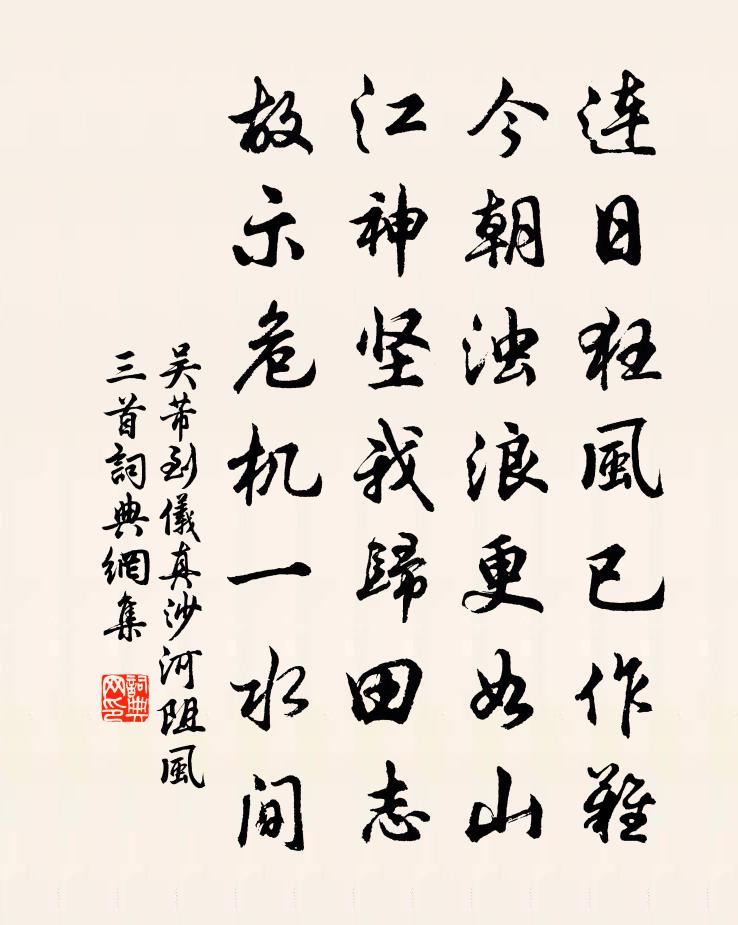 連日狂風已作難
今朝浊浪更如山
江神坚我歸田志
故示危机一水间
吴芾到儀真沙河阻風
三首詞典網集
詞典网印